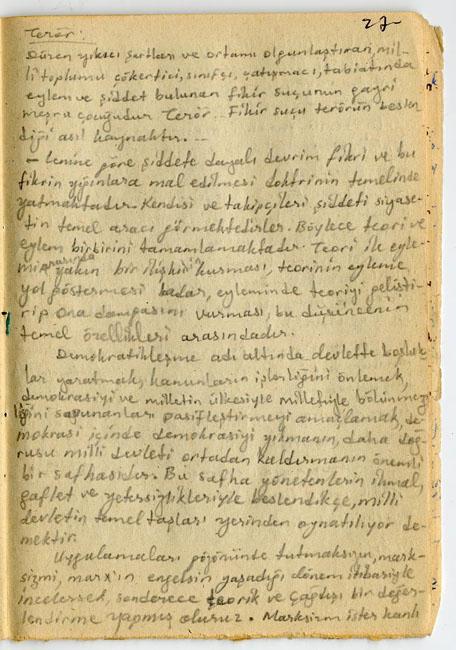 27-
Terör:
Düzen yıkıcı şartları ve ortamı olgunlaştıran, mil-
lî toplumu çökertici, sınıfçı, çatışmacı, tabiatında
eylem ve şiddet bulunan fikir suçunun gayri
meşru çocuğudur Terör.. Fikir suçu terörün beslen
diği asıl kaynaktır...
- Lenine göre şiddete dayalı devrim fikri ve bu
fikrin yığınlara mal edilmesi doktrinin temelinde
yatmaktadır. Kendisi ve takipçileri şiddeti siyase-
tin temel aracı görmektedirler. Böylece teori ve
eylem birbirini tamamlamaktadır. Teori ile eyle-
min arasında yakın bir ilişkinin kurması, teorinin eyleme
yol göstermesi kadar, eyleminde teoriyi gelişti-
rip ona damgasını vurması, bu düşüncenin
temel özellikleri arasındadır.
Demokratikleşme adı altında devlette boşluk-
lar yaratmak, kanunların işlerliğini önlemek,
demokrasiyi ve milletin ülkesiyle milletiyle bölünmez
liğini savunanları pasifleştirmeyi amaçlamak, de-
mokrasi içinde demokrasiyi yıkmanın, daha doğ-
rusu milli devleti ortadan kaldırmanın önemli
bir safhasıdır. Bu safha yönetenlerin ihmal,
gaflet ve yetersizlikleriyle beslendikçe, milli
devletin temel taşları yerinden oynatılıyor de-
mektir.
Uygulamaları gözönünde tutmaksızın, mark-
sizmi, marx'ın engelsin yaşadığı dönem itibariyle
incelersek, sonderece teorik ve çağdışı bir değer-
lendirme yapmış oluruz. Marksizm ister kanlı